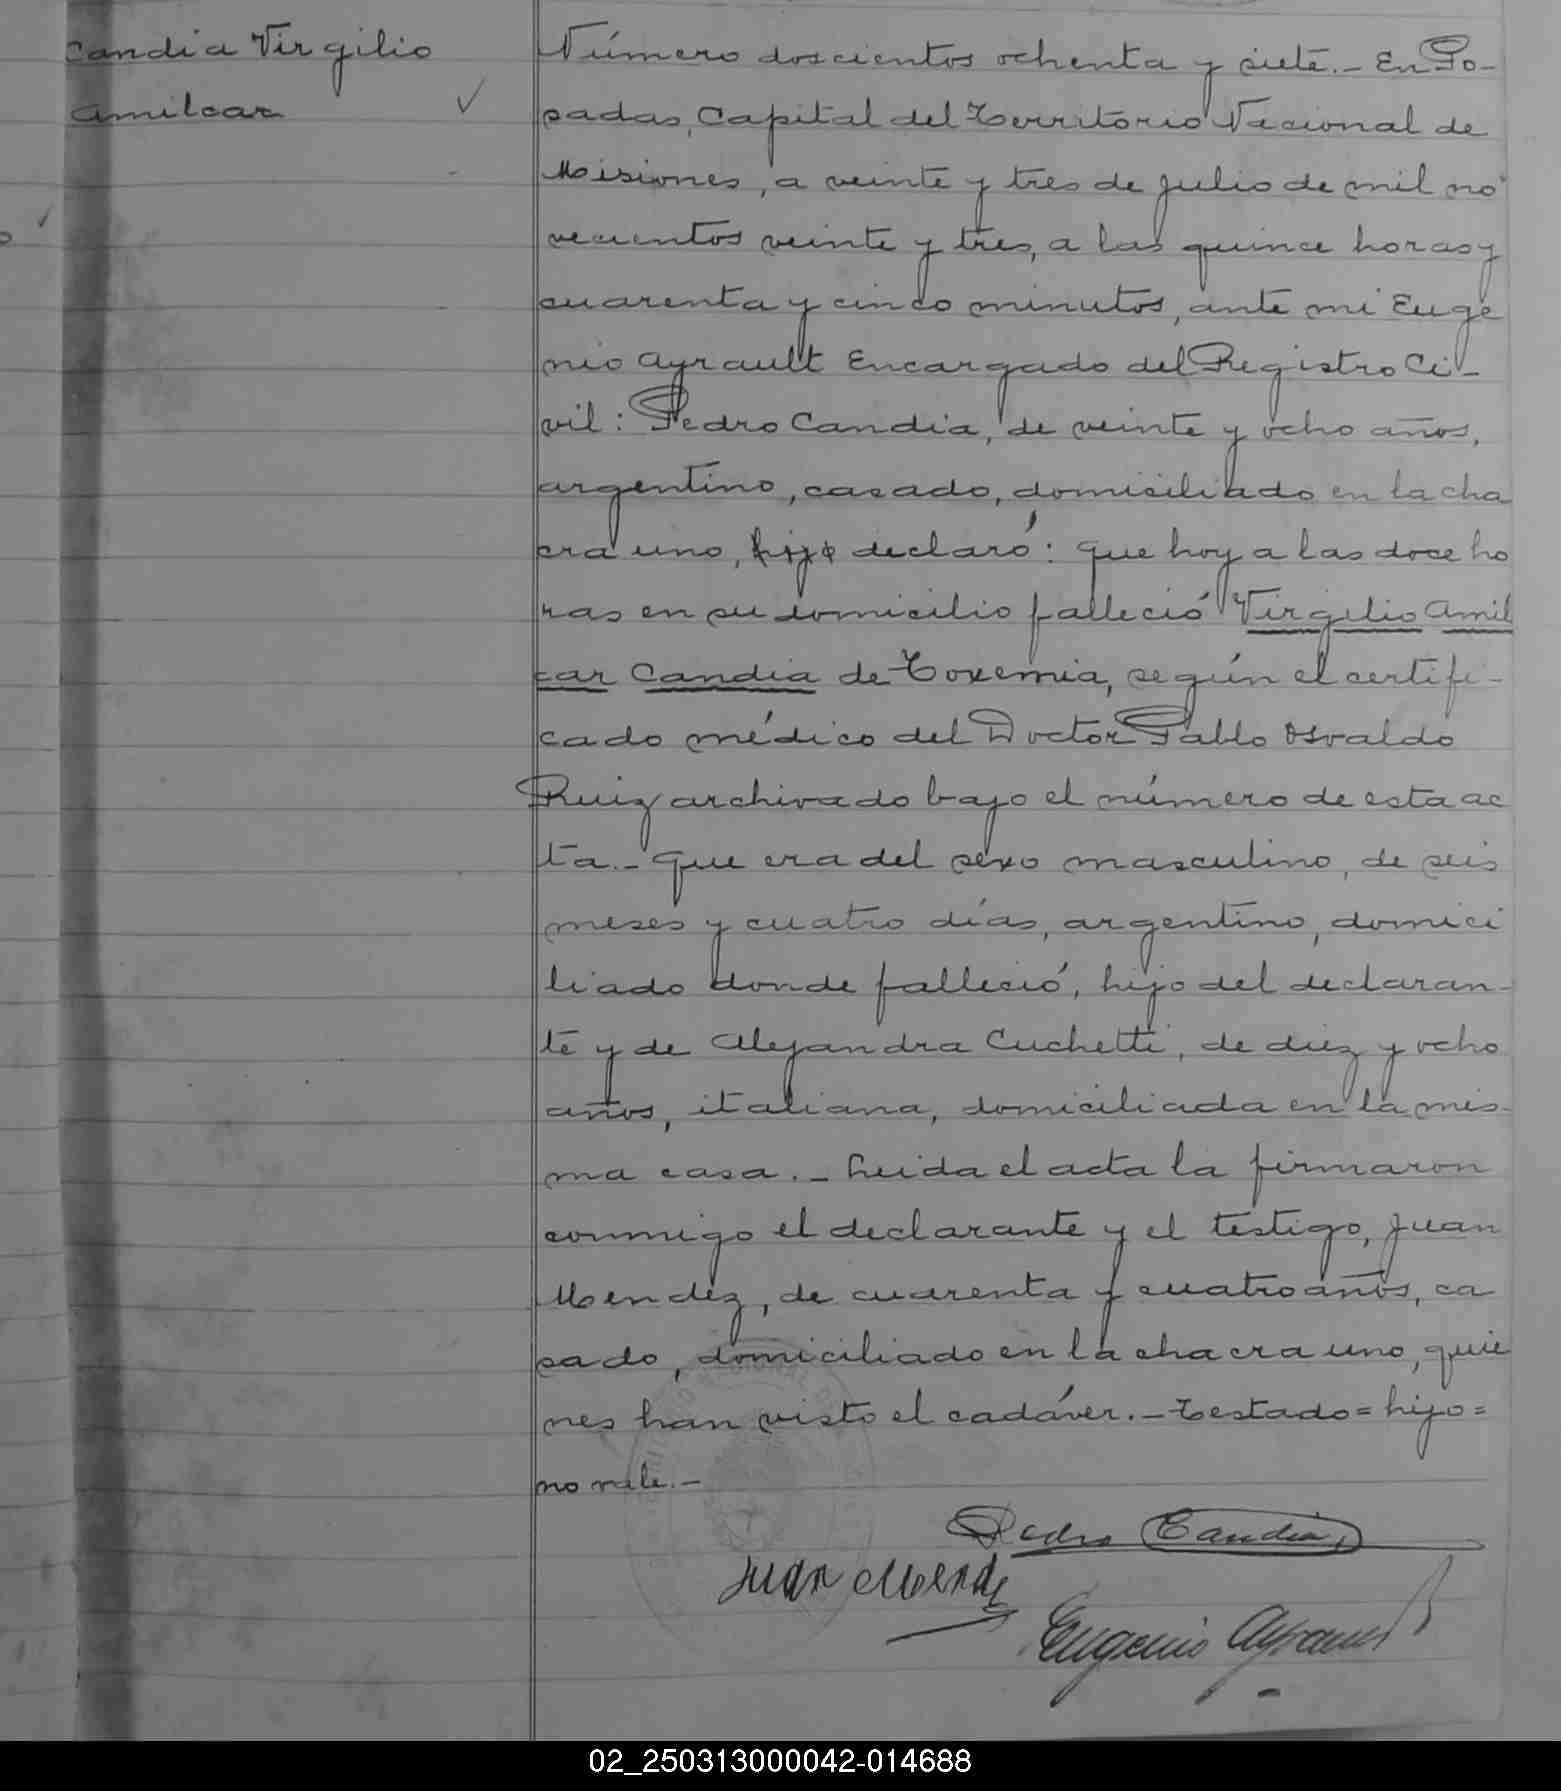 Candia Virgilio
Amilcar
Número doscientos ochenta y siete.- En Po-
sadas, Capital del Territorio Nacional de
Misiones, a veinte y tres de julio de mil no
vecientos veinte y tres, a las quince horas y
cuarenta y cinco minutos, ante mi Euge
nio Ayrault Encargado del Registro Ci-
vil: Pedro Candia, de veinte y ocho años,
argentino, casado, domiciliado en la cha
cra uno, hijo declaró: que hoy a las doce ho
ras en su domicilio falleció Virgilio Amil
car Candia de Toxemia, según el certifi-
cado médico del Doctor Pablo Osvaldo
Ruiz archivado bajo el número de esta ac
ta.- Que era del sexo masculino, de seis
meses y cuatro días, argentino, domici
liado donde falleció, hijo del declaran-
te y de Alejandra Cuchetti, de diez y ocho
años, italiana, domiciliada en la mis-
ma casa.- Leida el acta la firmaron
conmigo el declarante y el testigo, Juan
Mendez, de cuarenta y cuatro años, ca
sado, domiciliado en la chacra uno, quie
nes han visto el cadáver.- Testado = hijo =
no vale.-
Pedro Candia
Juan Mendez
Eugenio Ayrault
02_250313000042-014688